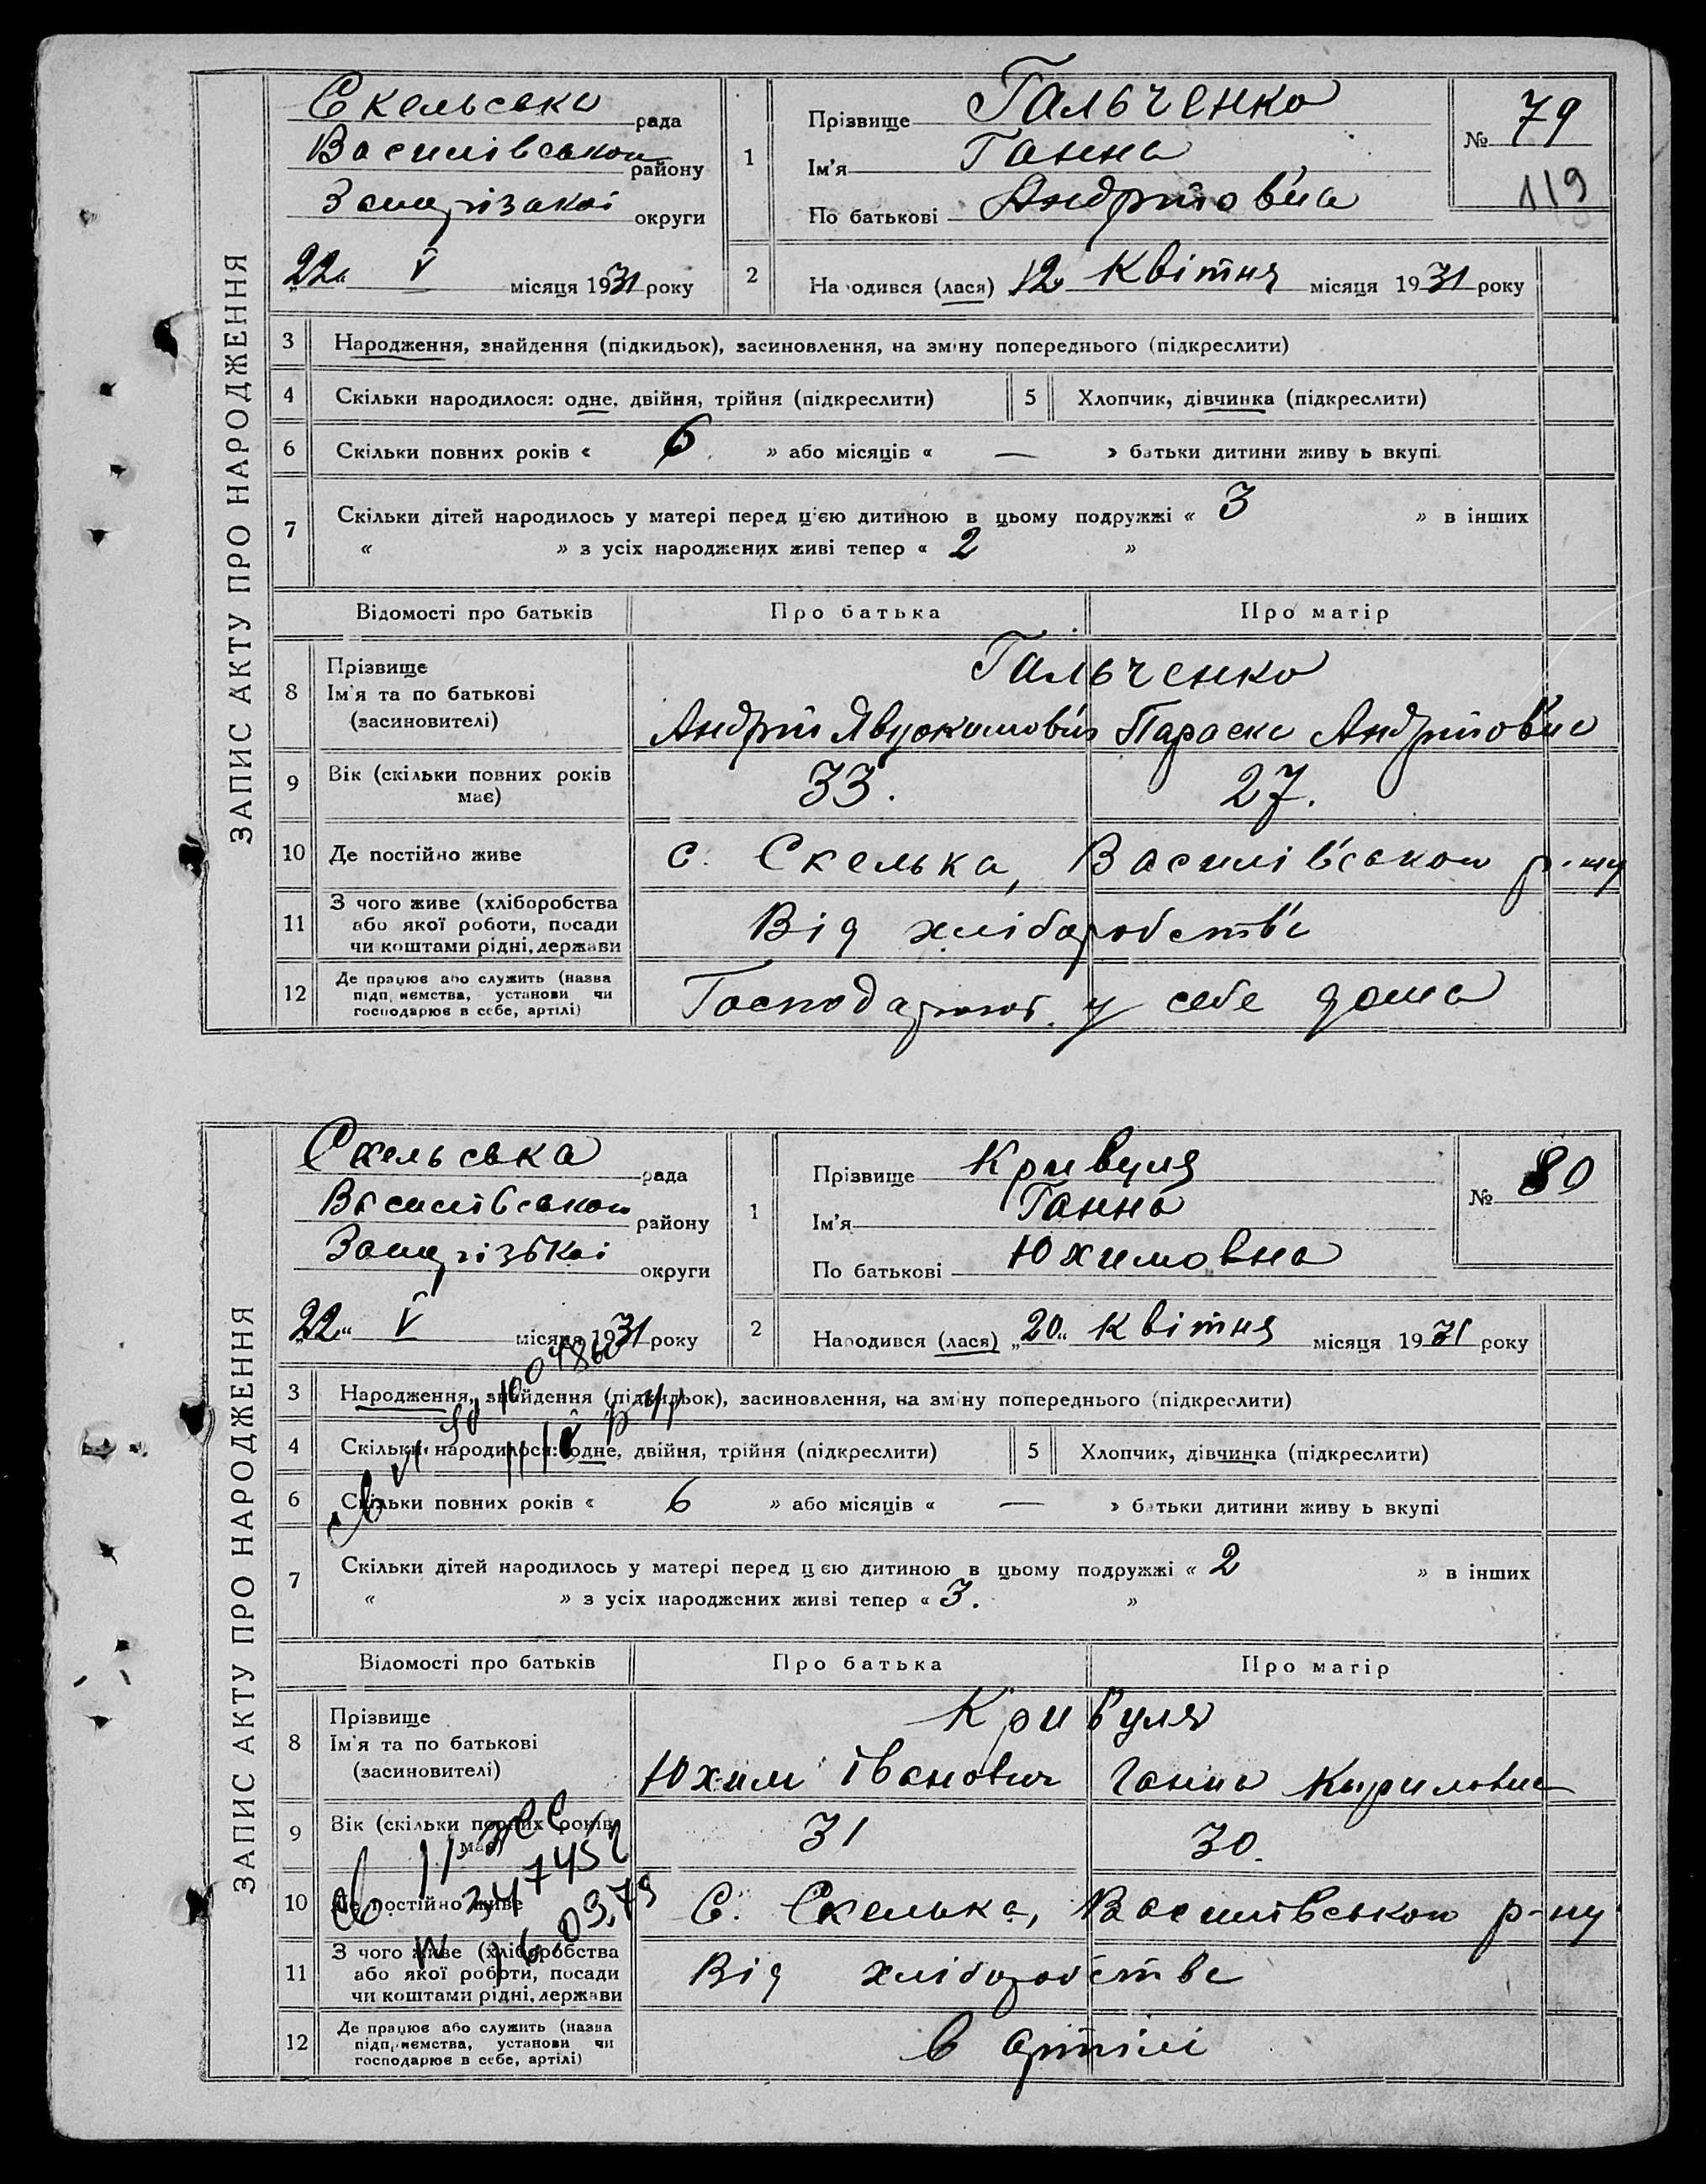 ЗАПИС АКТУ ПРО НАРОДЖЕННЯ
Скельська рада
Василівськом району
Запорізької округи
"22" V місяця 1931 року
1 Прізвище Гальченко
Ім'я Ганна
По батькові Андріівна
№ 79
119
2 Народився (лася) 12 Квітня місяця 1931 року
3 Народження, знайдення (підкидьок), засиновлення, на зміну попереднього (підкреслити)
4 Скільки народилося: одне, двійня, трійня (підкреслити) 5 Хлопчик, дівчинка (підкреслити)
6 Скільки повних років « 6 » або місяців « — » батьки дитини живуть вкупі
7 Скільки дітей народилось у матері перед цією дитиною в цьому подружжі « 3 » в інших
« » з усіх народжених живі тепер « 2 »
Відомості про батьків Про батька Про матір
8 Прізвище
Ім'я та по батькові
(засиновителі)
Гальченко
Андрій Параска Андріівна
9 Вік (скільки повних років має) 33. 27.
10 Де постійно живе с. Скелька, Василівськом р-ну
11 З чого живе (хліборобства
або якої роботи, посади
чи коштами рідні, держави
Від хліборобства
12 Де працює або служить (назва
підприємства, установи чи
господарює в себе, артілі)
Господарюют у себе дома
ЗАПИС АКТУ ПРО НАРОДЖЕННЯ
Скельська рада
Василівськом району
Запорізької округи
"22" V місяця 1931 року
1 Прізвище Кривуля
Ім'я Ганна
По батькові Юхимовна
№ 80
2 Народився (лася) "20" Квітня місяця 1931 року
3 Народження, знайдення (підкидьок), засиновлення, на зміну попереднього (підкреслити)
4 Скільки народилося: одне, двійня, трійня (підкреслити) 5 Хлопчик, дівчинка (підкреслити)
6 Скільки повних років « 6 » або місяців « — » батьки дитини живуть вкупі
7 Скільки дітей народилось у матері перед цією дитиною в цьому подружжі « 2 » в інших
« » з усіх народжених живі тепер « 3. »
Відомості про батьків Про батька Про матір
8 Прізвище
Ім'я та по батькові
(засиновителі)
Кривуля
Юхим Іванович Ганна Кириловна
9 Вік (скільки повних років має) 31 30.
10 Де постійно живе С. Скелька, Василівськом р-ну
11 З чого живе (хліборобства
або якої роботи, посади
чи коштами рідні, держави
Від хліборобства
12 Де працює або служить (назва
підприємства, установи чи
господарює в себе, артілі)
в артілі